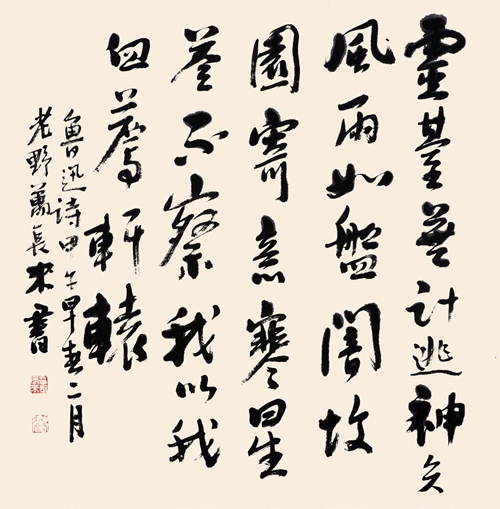 靈臺無計逃神矢
風雨如盤闇故
園寄意寒星
荃不察我以我
血薦軒轅
魯迅詩甲午早春二月
老野蕭長書